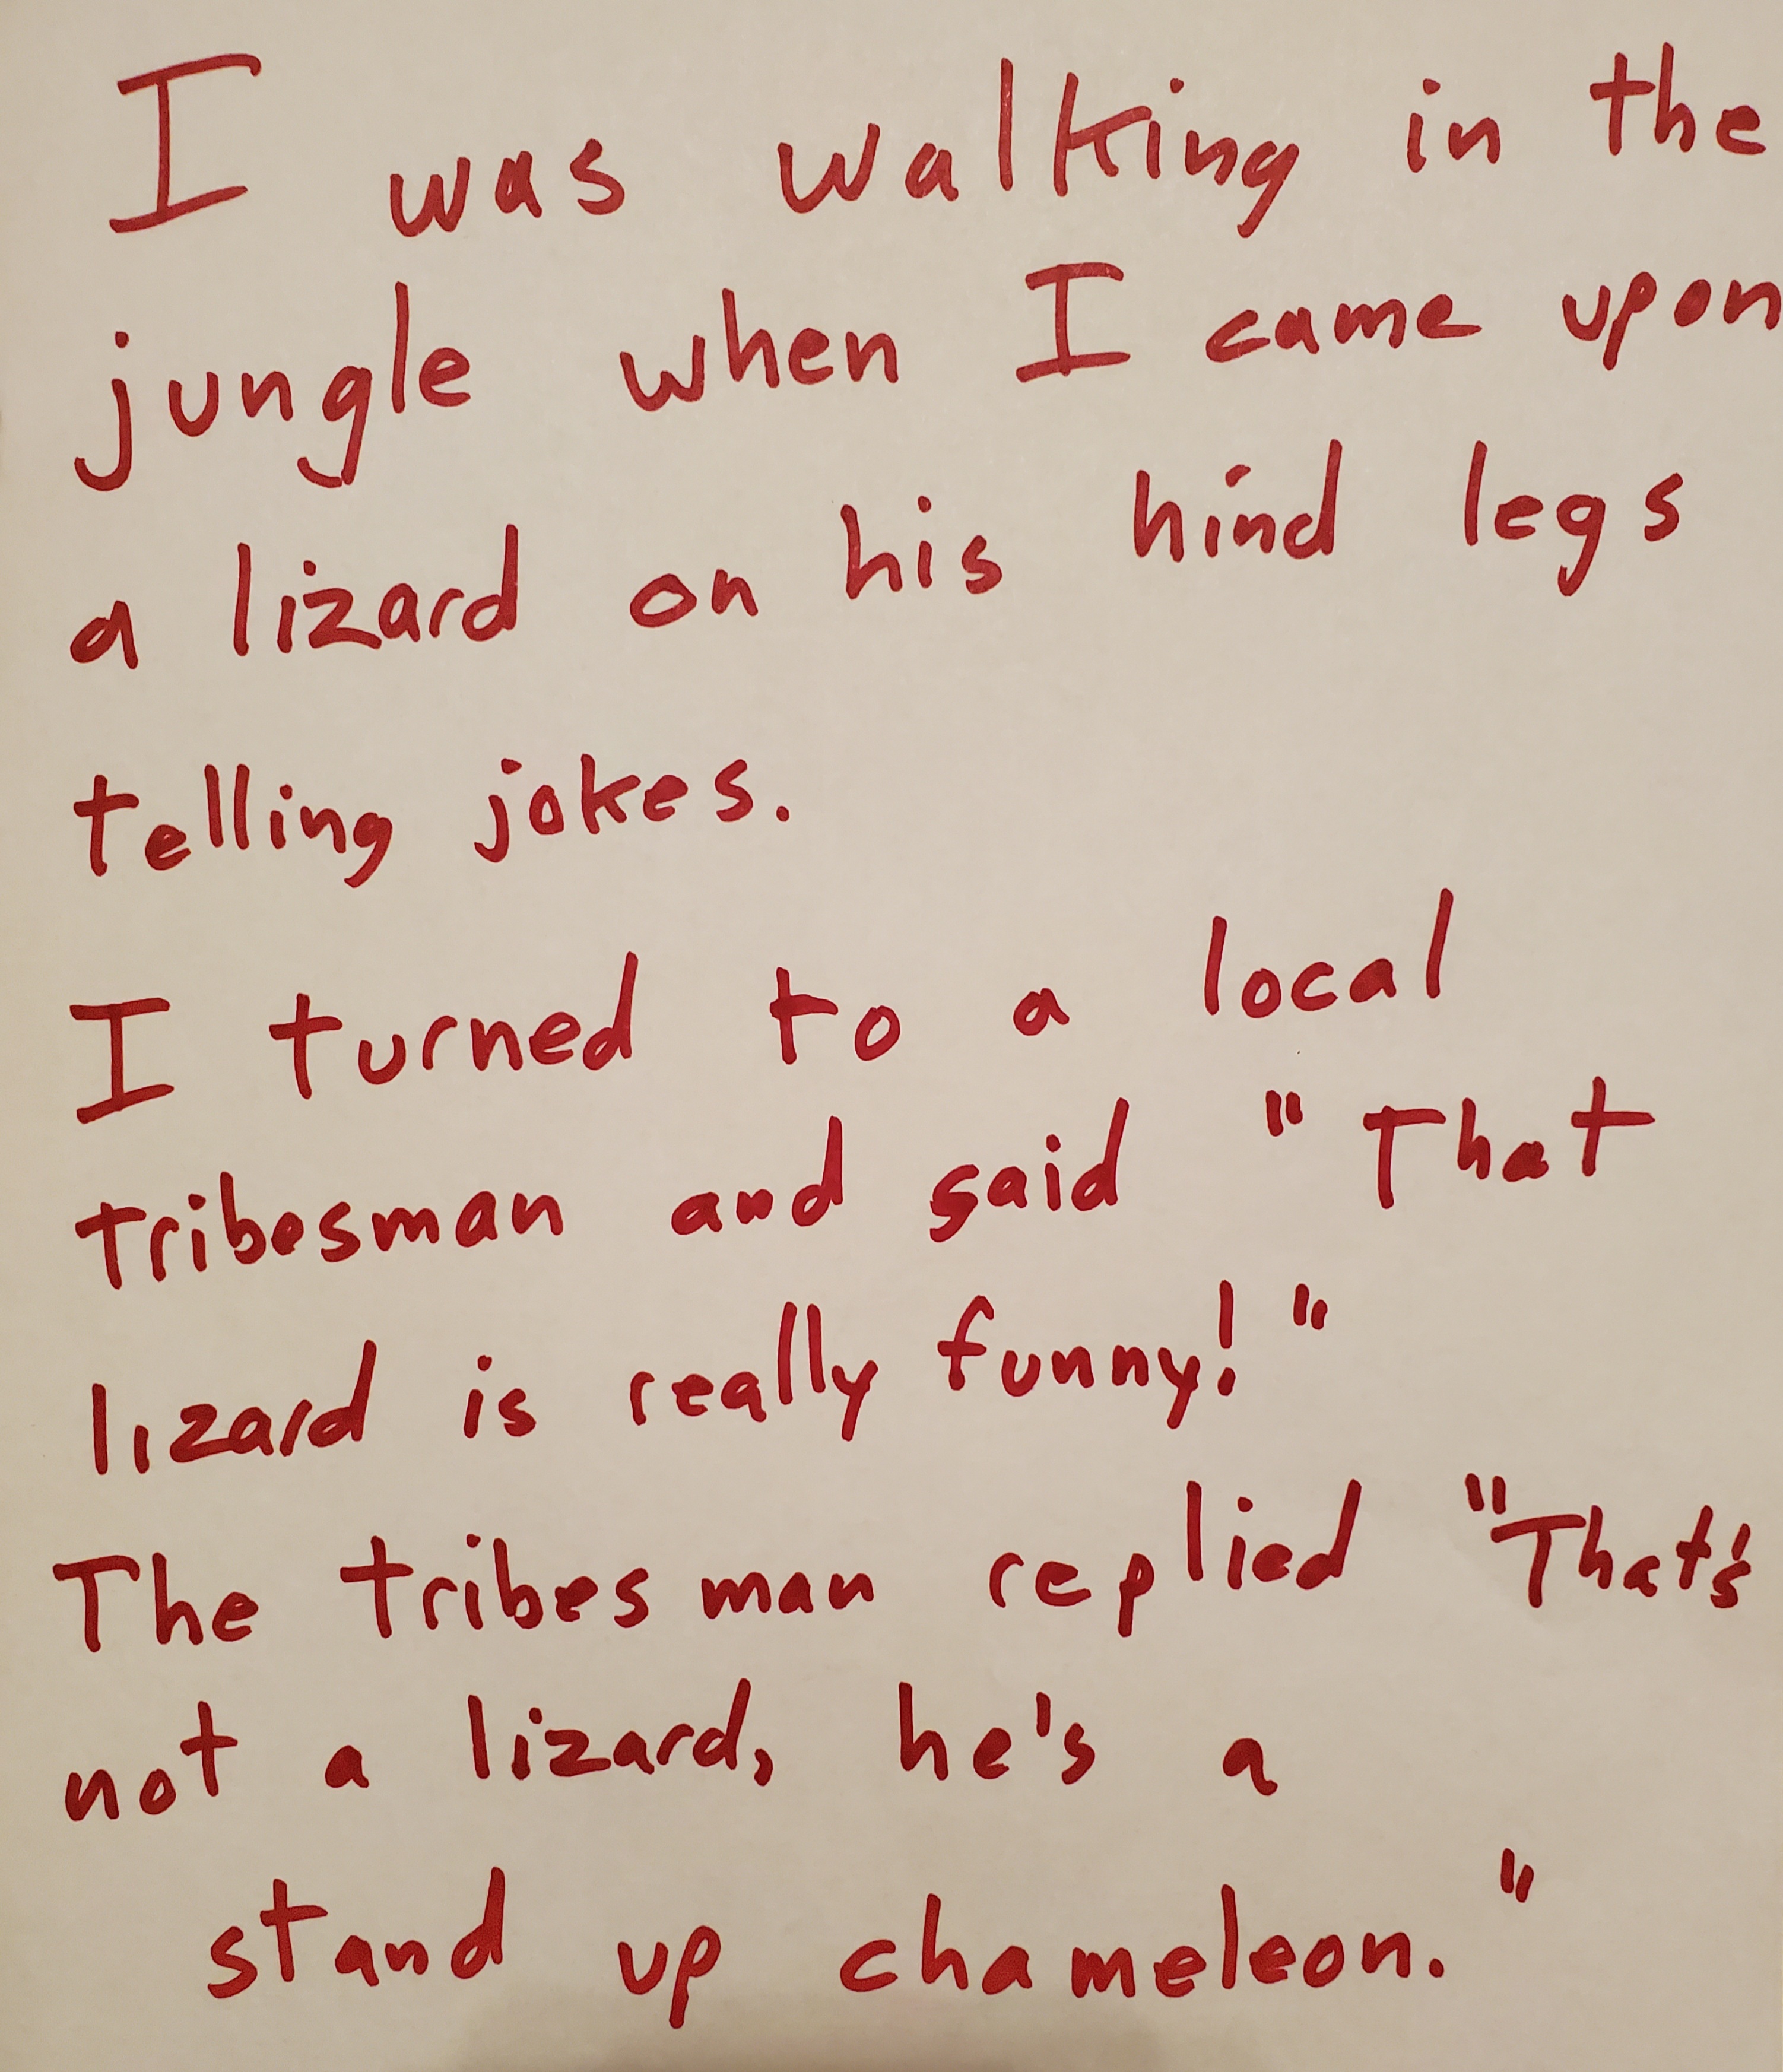 I was walking in the
jungle when I came upon
a lizard on his hind legs
telling jokes.
I turned to a local
tribesman and said "That
lizard is really funny!"
The tribesman replied "That's
not a lizard, he's a
stand up chameleon."